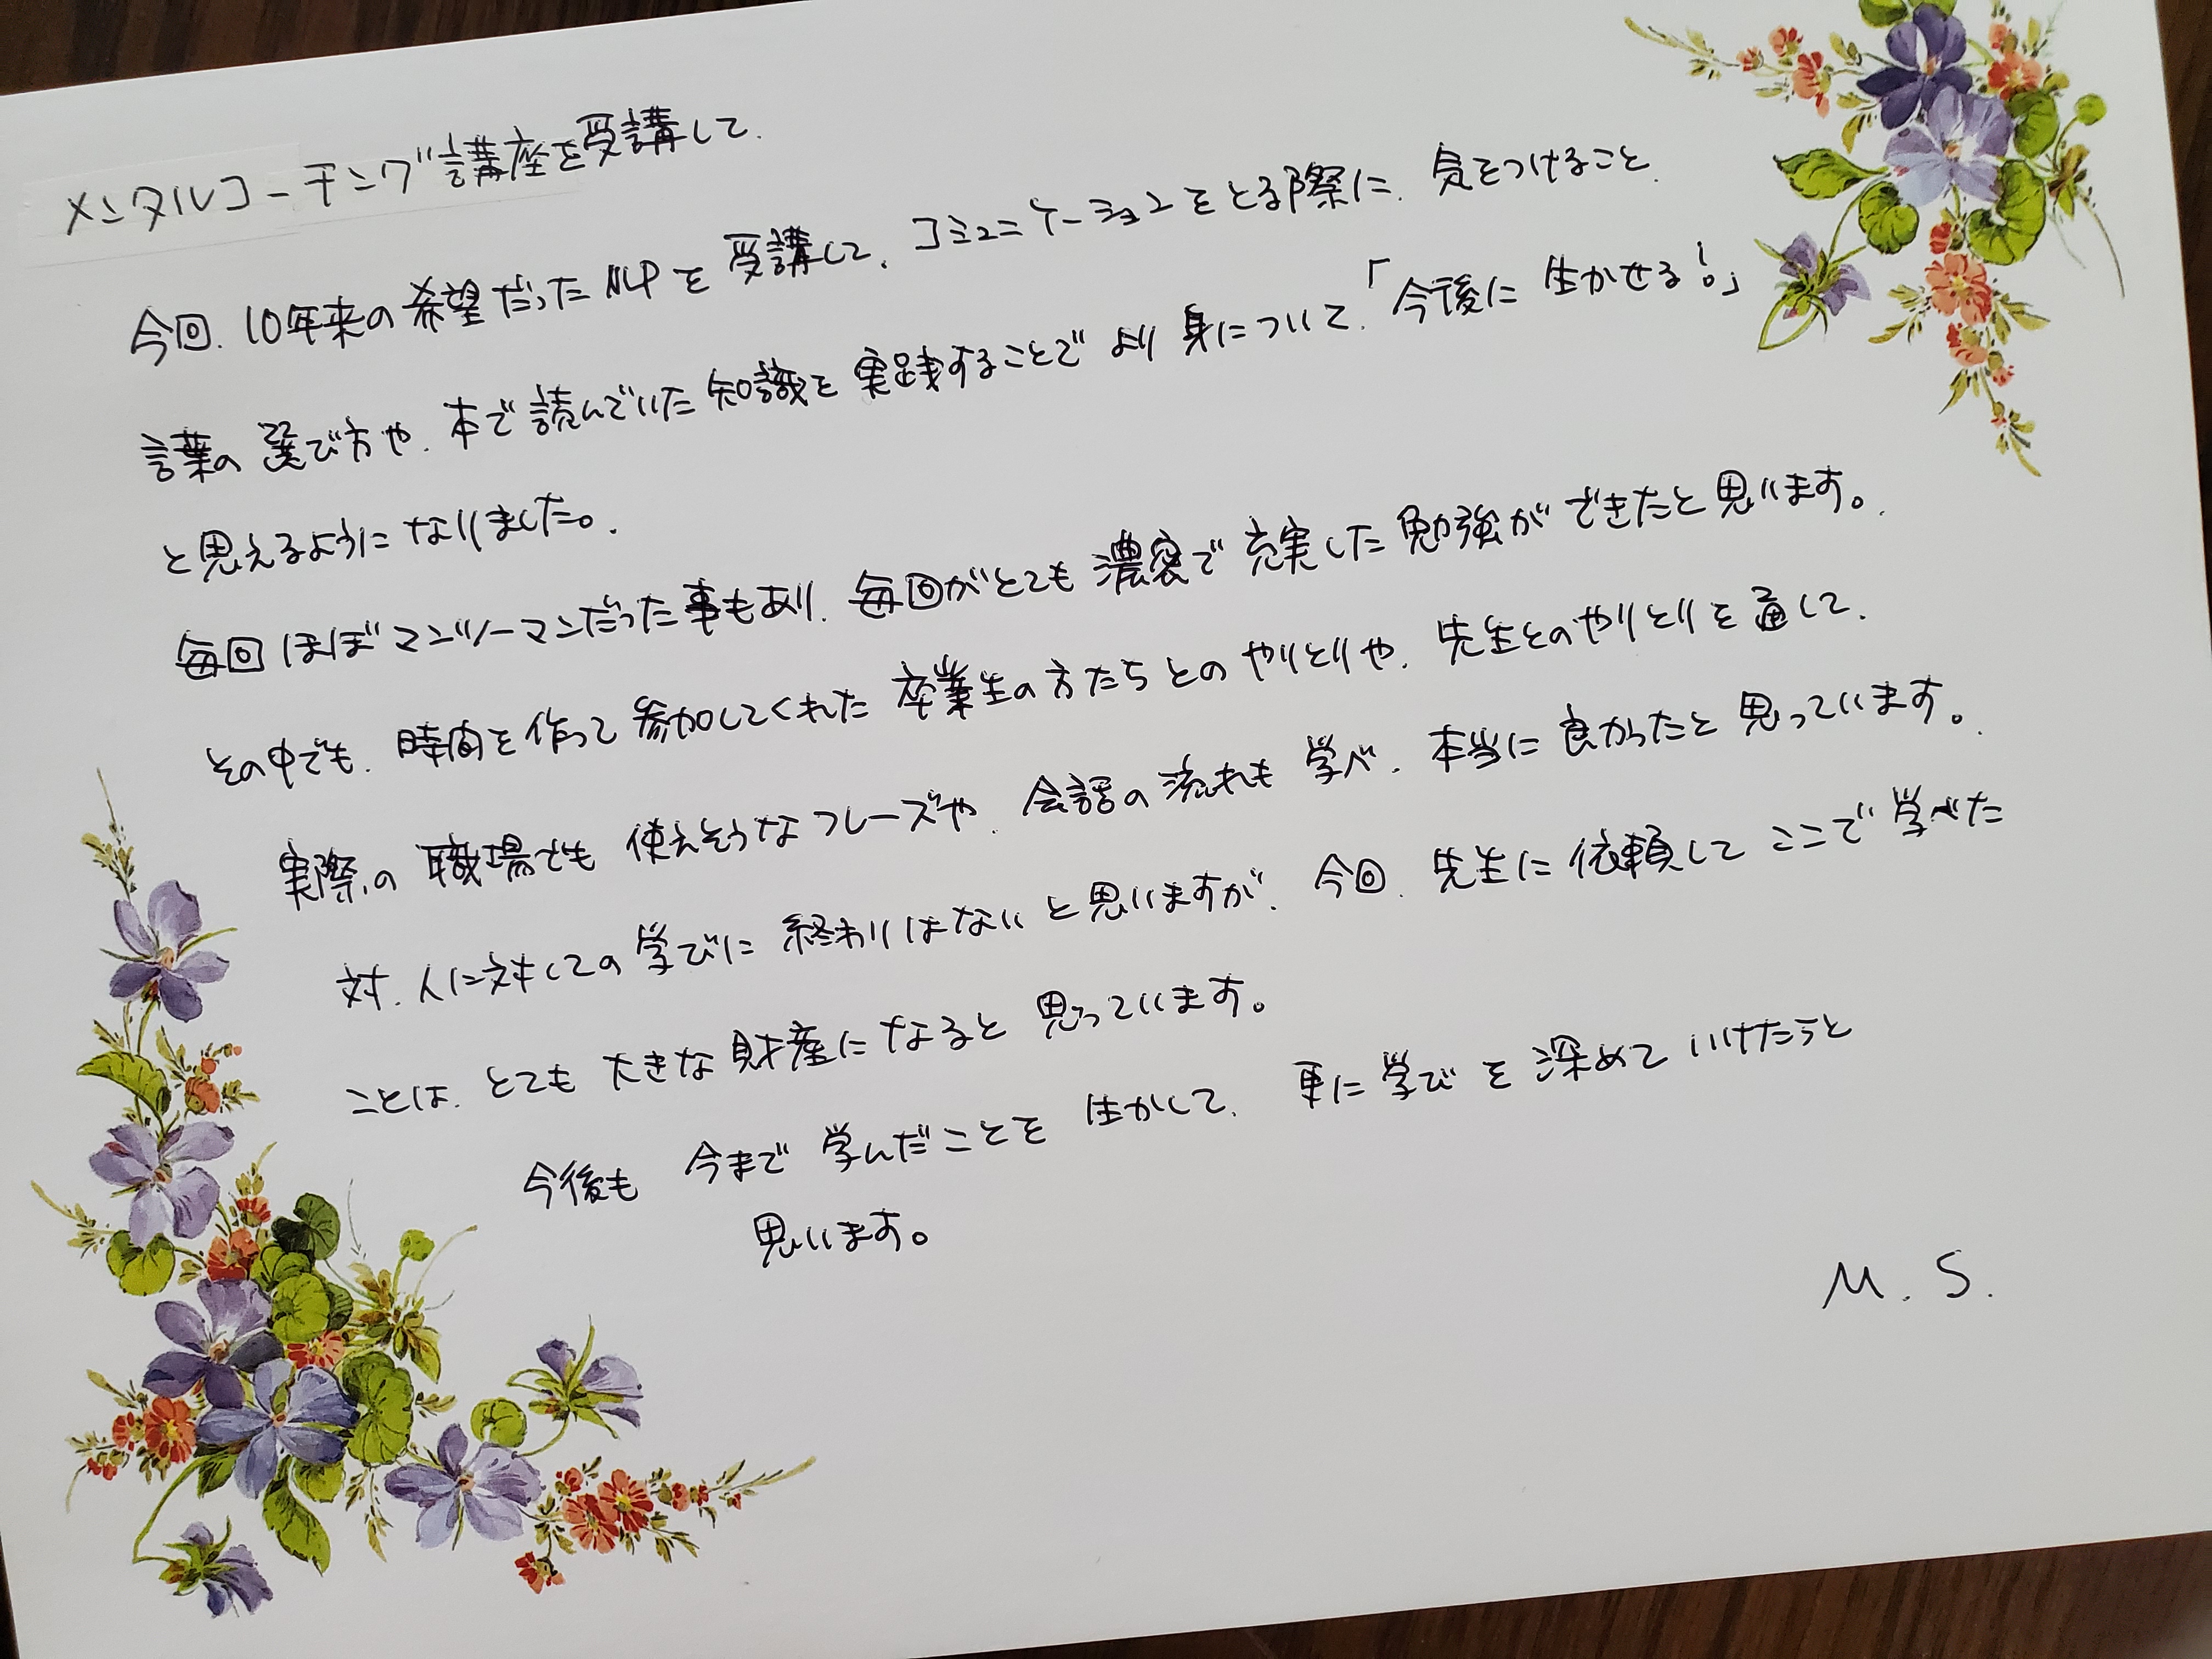 メンタルコーチング講座を受講して.
今回.10年来の希望だったNLPを受講して、コミュニケーションをとる際に.気をつけること.
言葉の選び方や.本で読んでいた知識を実践することでより身について.「今後に生かせる!。」
と思えるようになりました。.
毎回ほぼマンツーマンだった事もあり.毎回がとても濃密で充実した勉強ができたと思います。.
その中でも.時間を作って参加してくれた卒業生の方たちとのやりとりや.先生とのやりとりを通して.
実際の職場でも使えそうなフレーズや.会話の流れも学べ.本当に良かったと思っています。.
対.人に対しての学びに終わりはないと思いますが.今回.先生に依頼してここで学べた
ことは.とても大きな財産になると思っています。
今後も今まで学んだことを生かして.更に学びを深めていけたらと
思います。
M.S.